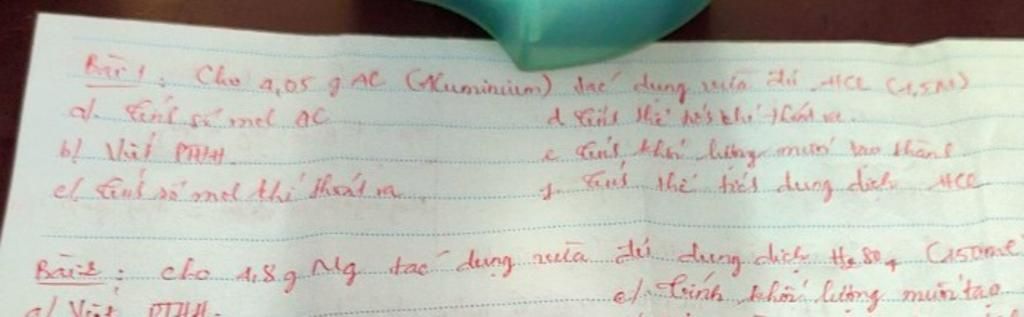 Bài 1: Cho 4,05 g Al (Aluminium) tác dụng vừa đủ HCl (1,5M)
a). Tính số mol Al
d. Tính thể tích khí thoát ra.
b/ Viết PTHH.
e. Tính khối lượng muối tạo thành
c/ Tính số mol khí thoát ra
f. Tính thể tích dung dịch HCl
Bài 2: Cho 4,8 g Mg tác dụng vừa đủ dung dịch H2SO4 (150ml
a/ Viết PTHH.
e/. Tính khối lượng muối tạo